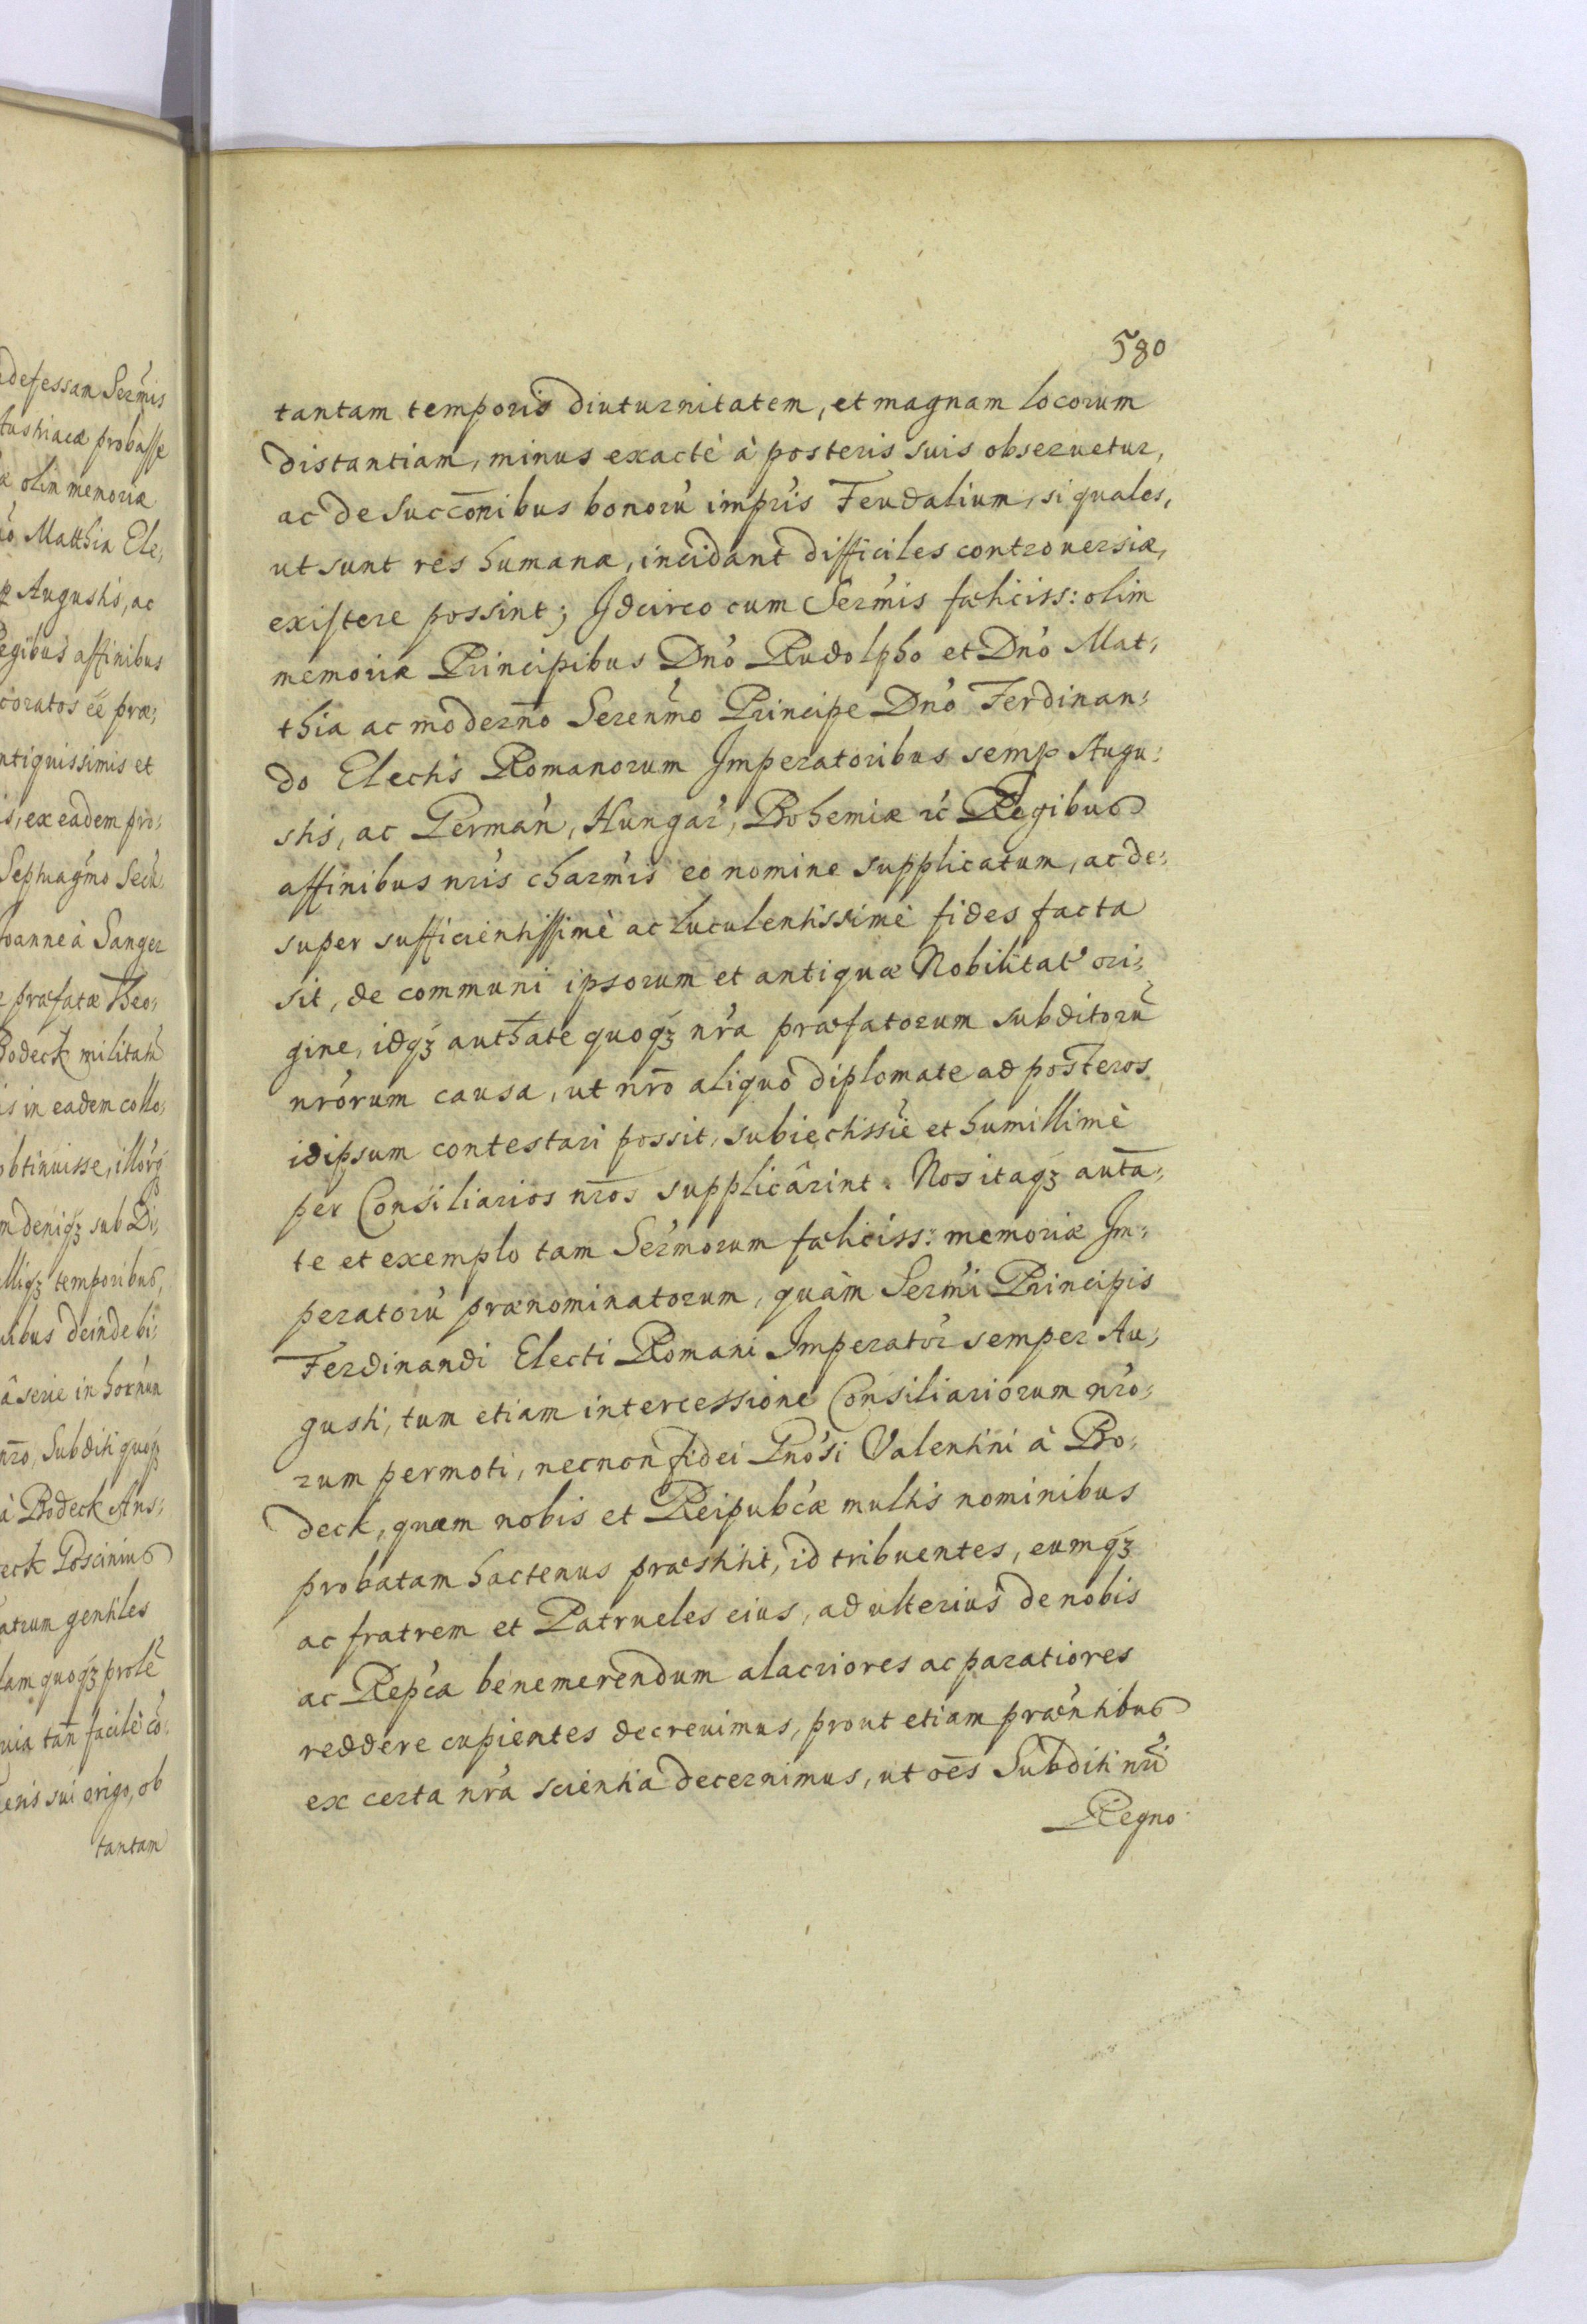 adefessam Sermis
tustriacæ probasse
olim menoriæ
Matthia Ele,
Augustis, ac
Regibus affinibus
coratos eē præ,
ntiquissimis et
s, ex eadem pro,
Septuagmo Secu
Joanne à Sanger
præfatæ Theo,
Bodeck militatu
is in eadem collo,
obtinuisse, illorq
m deniqȝ sub Di,
illiqȝ temporibus,
uibus deinde bi,
â serie in hornun
nr̄o, Subditi quoqȝ
à Bodeck Ans,
eck Poscinius
atrum gentiles
lam quoqȝ prolē
uia tan̄ facilè co,
eris sui origo, ob
tantam
580
tantam temporis diuturnitatem, et magnam locorum
distantiam, minus exactè à posteris suis obseruetur,
ac de succ̄onibus bonorū impr̄is Feudalium, si quales,
ut sunt res humanæ, incidant difficiles controuersiæ,
existere possint; Idcirco cum Serm̄is fæliciss: olim
memoriæ Principibus Dn̄o Rudolpho et Dn̄o Mat,
thia ac modern̄o Serenm̄o Principe Dn̄o Ferdinan,
do Electis Romanorum Imperatoribus semp Augu,
stis, ac German̄, Hungar̄, Bohemiæ ꝛc Regibus
affinibus nr̄is charm̄is eo nomine supplicatum, ac de,
super sufficientissimè ac luculentissimè fides facta
sit, de communi ipsorum et antiquæ Nobilitat̄ ori,
gine, idqȝ auth̄ate quoqȝ nr̄a præfatorum subditorū
nr̄orum causa, ut nr̄o aliquo diplomate ad posteros
idipsum contestari possit, subiectissiè et humillimè
per Consiliarios nr̄os supplicârint. Nos itaqȝ aut̄a,
te et exemplo tam Serm̄orum fæliciss: memoriæ Im,
peratorū prænominatorum, quàm Serm̄i Principis
Ferdinandi Electi Romani Imperator̄ semper Au,
gusti, tum etiam intercessione Consiliariorum nr̄o,
rum permoti, necnon fidei Gn̄osi Valentini à Bo,
deck, quam nobis et Reipubc̄æ multis nominibus
probatam hactenus præstitit, id tribuentes, eumqȝ
ac fratrem et Patrueles eius, ad ulterius de nobis
ac Repc̄a benemerendum alacriores ac paratiores
reddere cupientes decreuimus, prout etiam præn̄tibus
ex certa nr̄a scientia decernimus, ut oēs Subditi nr̄i
Regno